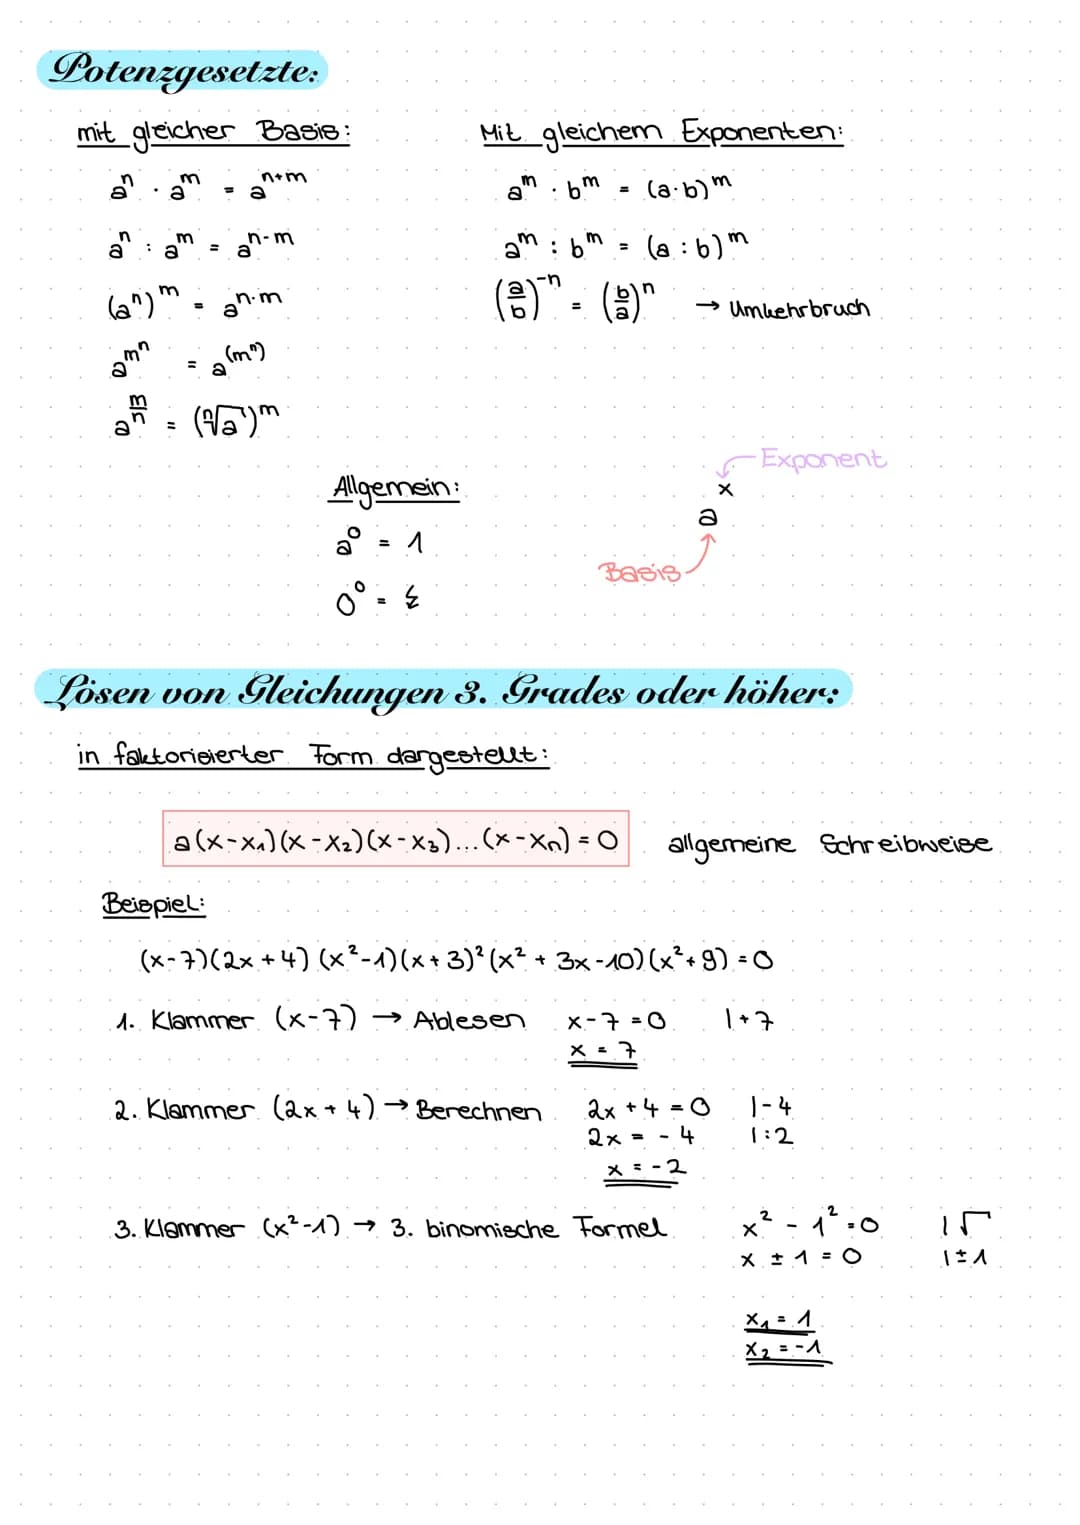 Potenzgesetzte:
mit gleicher Basis:
aⁿ · aᵐ = aⁿ⁺ᵐ
aⁿ : aᵐ = aⁿ⁻ᵐ
(aⁿ)ᵐ = aⁿ·ᵐ
a^m^n = a^(mⁿ)
a^(m/n) = (ⁿ√a)ᵐ
Mit gleichem Exponenten:
aᵐ · bᵐ = (a·b)ᵐ
aᵐ : bᵐ = (a : b)ᵐ
(a/b)⁻ⁿ = (b/a)ⁿ → Umkehrbruch
Allgemein:
a⁰ = 1
0⁰ = ↯
Exponent
aˣ
Basis
Lösen von Gleichungen 3. Grades oder höher:
in faktorisierter Form dargestellt:
a(x-x₁)(x-x₂)(x-x₃)...(x-xₙ) = 0 allgemeine Schreibweise
Beispiel:
(x-7)(2x+4)(x²-1)(x+3)²(x² + 3x-10)(x²+9) = 0
1. Klammer (x-7) → Ablesen x-7 = 0 |+7
x = 7
2. Klammer (2x + 4) → Berechnen 2x + 4 = 0 |-4
2x = -4 |:2
x = -2
3. Klammer (x²-1) → 3. binomische Formel x² - 1² = 0 |√
x ± 1 = 0 |±1
x₁ = 1
x₂ = -1